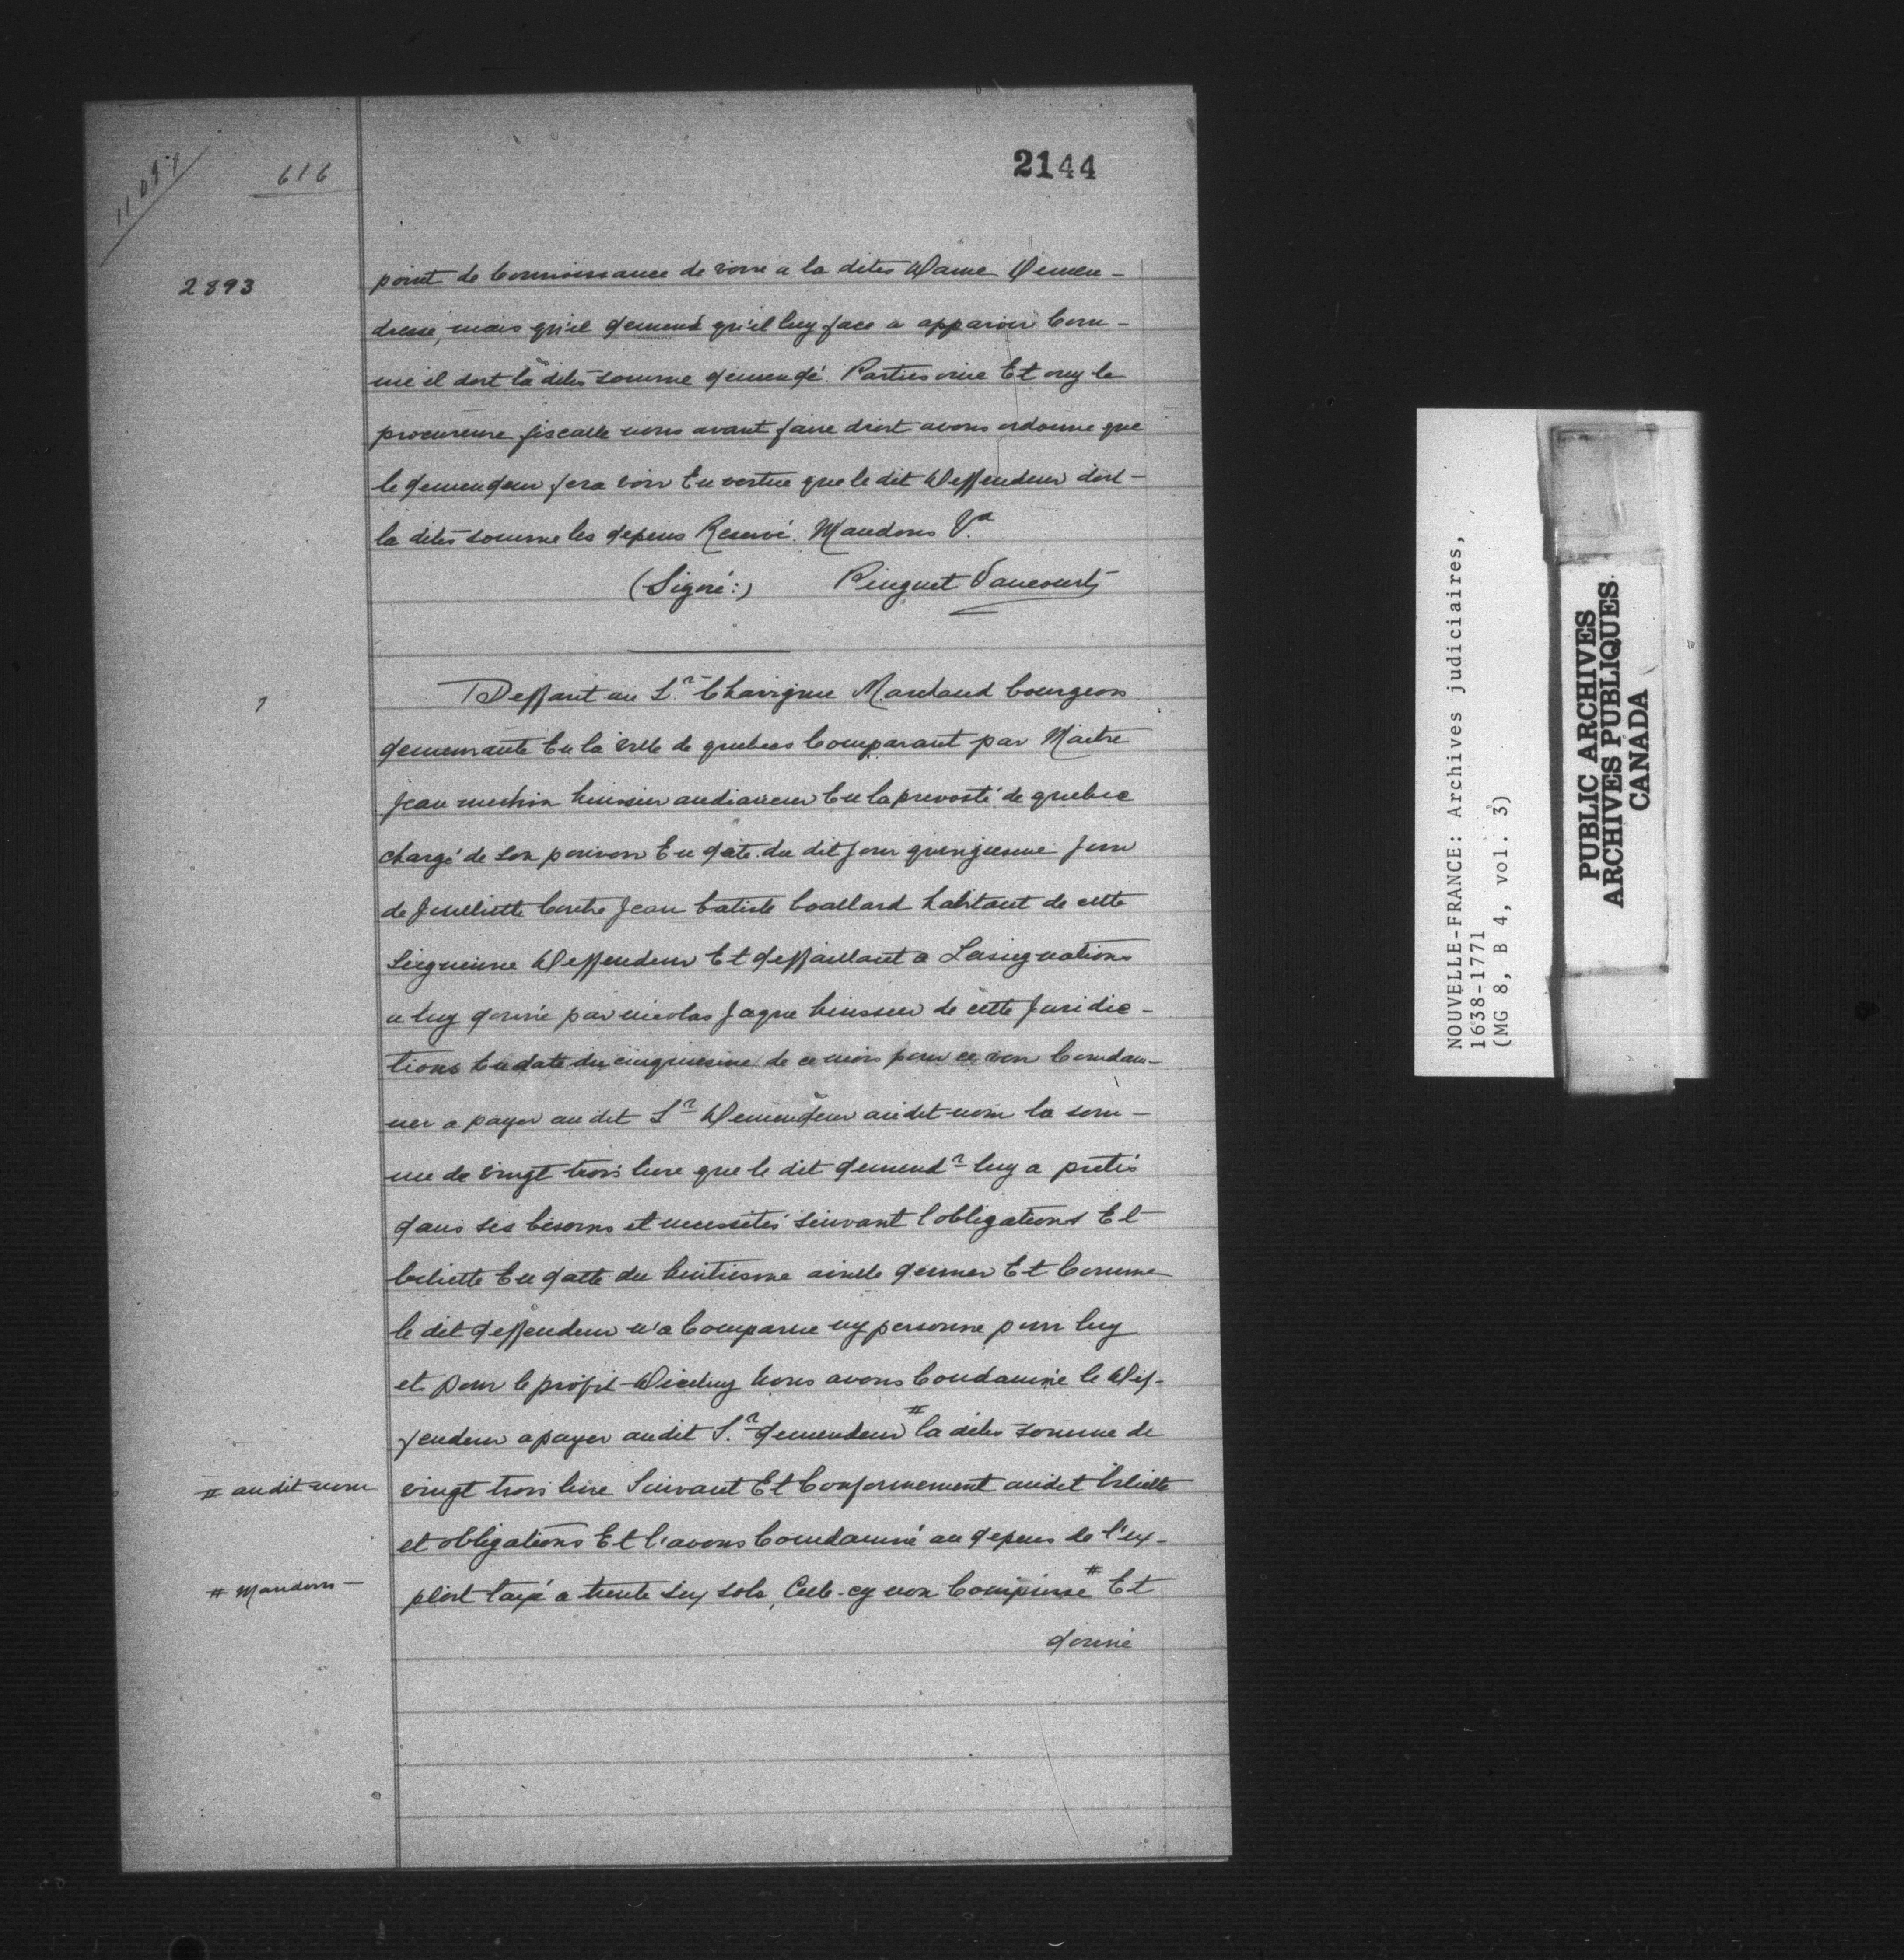 11099
616
2144
2893
point de Connoissance de voire a la dites Dame Demen-
dresse, mais qu'il demend qu'il luy face a apparoir Com-
me il doit la dites somme demendé. Parties ouie Et ouy le
procureure fiscalle nous avant faire droit avons ordonne que
le demendeur fera voir En vertue que le dit Deffendeur doit
la dites somme les depens Reservé. Mandons &a
(Signé:) Pinguet Vaucourt
Deffaut au Sr Chavigne Marchand bourgeois
demeurante En la ville de quebecs Comparant par Maitre
Jean mechin huissier audiancier En la prevosté de quebec
chargé de son pouvoir En date du dit jour quinziesme jour
de Juilliette Contre Jean batiste Coallard habitant de cette
Seigneurie Deffendeur Et deffaillant a Lassignations
a luy donné par nicolas Jaque huissier de cette Juridic-
tions En date du cinquiesme de ce mois pour ce voir Condam-
ner a payer au dit Sr Demendeur audit nom la som-
me de vingt trois livre que le dit demendr luy a pretés
dans ses besoins et necessités suivant l'obligations Et
billiette En datte du huitiesme avielle dernier Et Comme
le dit deffendeur n'a Comparue ny personne pour luy
et pour le profit Diceluy Nous avons Condamné le Def-
fendeur a payer audit Sr demendeur # la dites somme de
# au dit nom
vingt trois livre Suivant Et Conformement audit biliette
et obligations Et l'avons Condamné au depens de l'ex-
# Mandons
ploit taxé a trente six sols, Celle-cy non Comprise # Et
donné
NOUVELLE-FRANCE: Archives judiciaires,
1638-1771
(MG 8, B 4, vol. 3)
PUBLIC ARCHIVES
ARCHIVES PUBLIQUES
CANADA